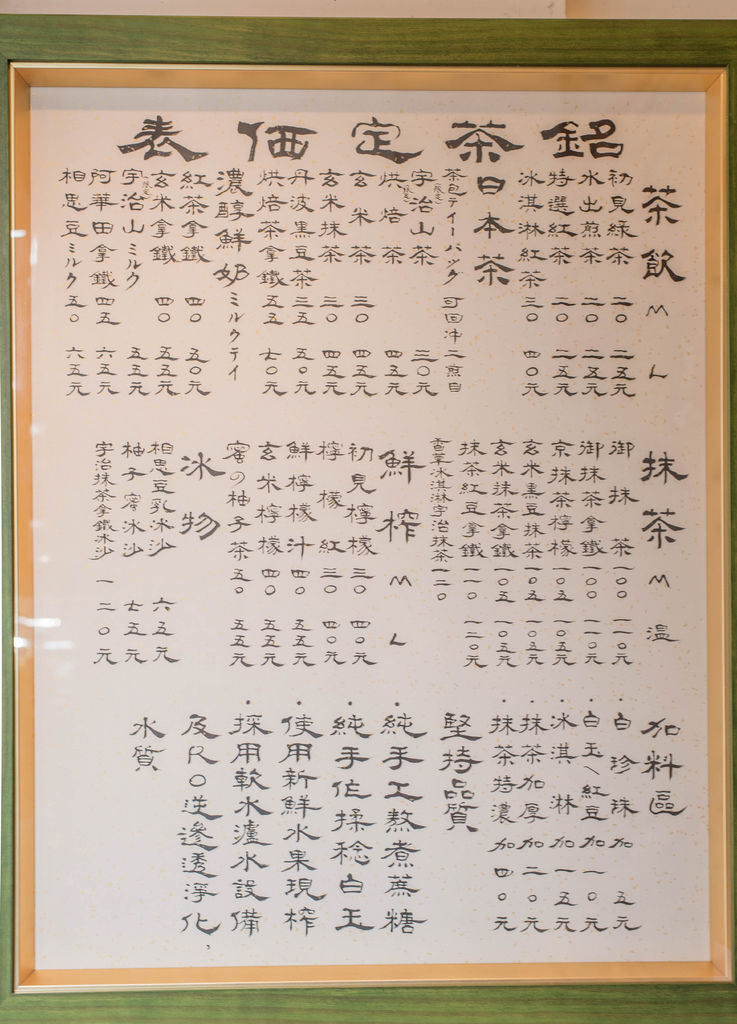 銘茶定価表
茶飲 M L
初見綠茶 二〇 二五元
水出煎茶 二〇 二五元
特選紅茶 二〇 二五元
冰淇淋紅茶 三〇 四〇元
日本茶
茶包ティーバッグ 可回沖二煎自
宇治山茶(限定) 三〇元
烘焙茶(限定) 四五元
玄米茶 三〇 四五元
玄米抹茶 三〇 四五元
丹波黑豆茶 三五 五〇元
烘焙茶拿鐵 五五 七〇元
濃醇鮮奶ミルクティ
紅茶拿鐵 四〇 五〇元
玄米拿鐵 四〇 五五元
宇治山ミルク(限定) 五五元
阿華田拿鐵 四五 六五元
相思豆ミルク 五〇 六五元
抹茶 M 溫
御抹茶 一〇〇 一一〇元
御抹茶拿鐵 一〇〇 一一〇元
京抹茶檸檬 一〇五 一〇五元
玄米黑豆抹茶 一〇五 一〇五元
玄米抹茶拿鐵 一〇五 一〇五元
抹茶紅豆拿鐵 一一〇 一二〇元
香草冰淇淋宇治抹茶 一二〇
鮮榨 M L
初見檸檬 三〇 四〇元
檸檬紅 三〇 四〇元
鮮檸檬汁 四〇 五五元
玄米檸檬 四〇 五五元
蜜の柚子茶 五〇 五五元
冰物
相思豆乳冰沙 六五元
柚子蜜冰沙 七五元
宇治抹茶拿鐵冰沙 一二〇元
加料區
·白珍珠加 五元
·白玉/紅豆加 一〇元
·冰淇淋加 一五元
·抹茶加厚加 二〇元
·抹茶特濃加 四〇元
堅持品質
·純手工熬煮蔗糖
·純手作揉稔白玉
·使用新鮮水果現榨
·採用軟水濾水設備
及RO逆滲透淨化,
水質